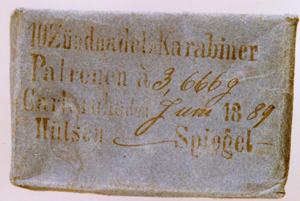 10 Zündnadel-Karabiner
Patronen à 3,666g
Carlsruhe den Juni 1889
Hülsen — Spiegel —